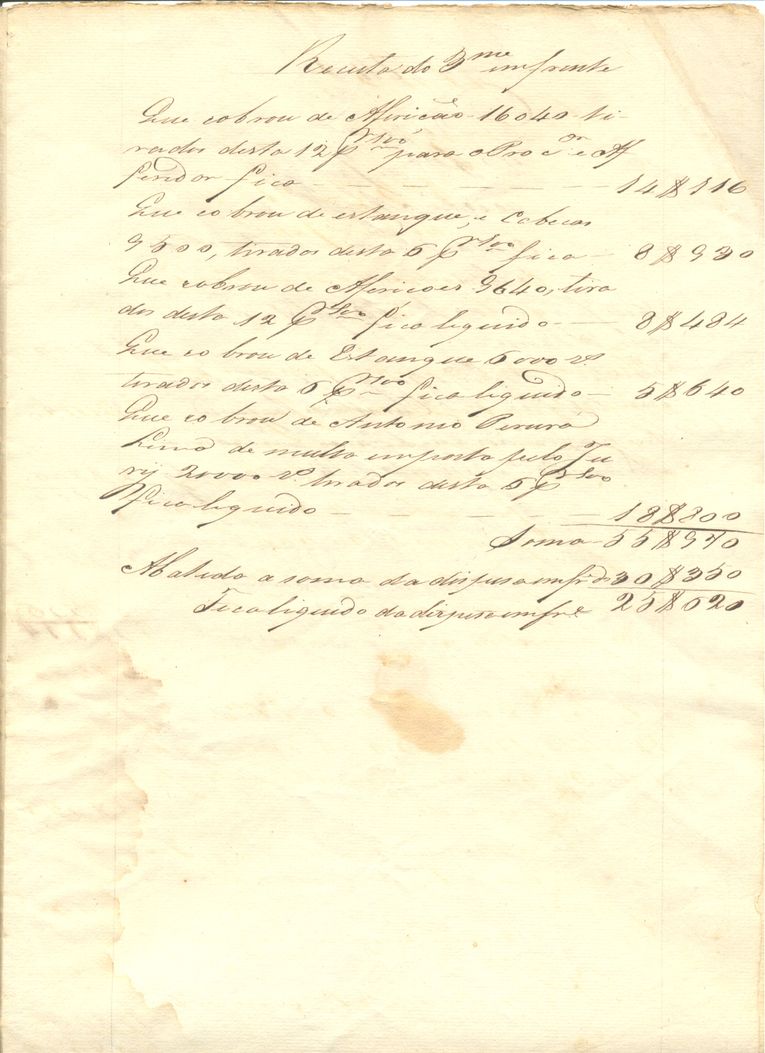 Receita do 3.me emfrente
Que cobrou de Afirição 16040 ti-
rados desta 12 p.r 100 para o Proc.or e Af
feridor fica — 14$116
Que cobrou de estanque, e Cabecas
9500, tirados desta 6 p.r 100 fica — 8$930
Que cobrou de Afiricoes 9640, tira
dos desta 12 p.r 100 fica liquido — 8$484
Que cobrou de Estanque 6000 rs.
tirados desta 6 p.r 100 fica liquido — 5$640
Que cobrou de Antonio Perura
Lima de multa imposta pelo Ju
rij 20000 rs. tirados desta 6 p.r 100
fica liquido — 18$800
Soma 55$970
Abatido a soma da dispesa emfr.e 30$350
Fica liquido da dispesa emfr.e 25$620